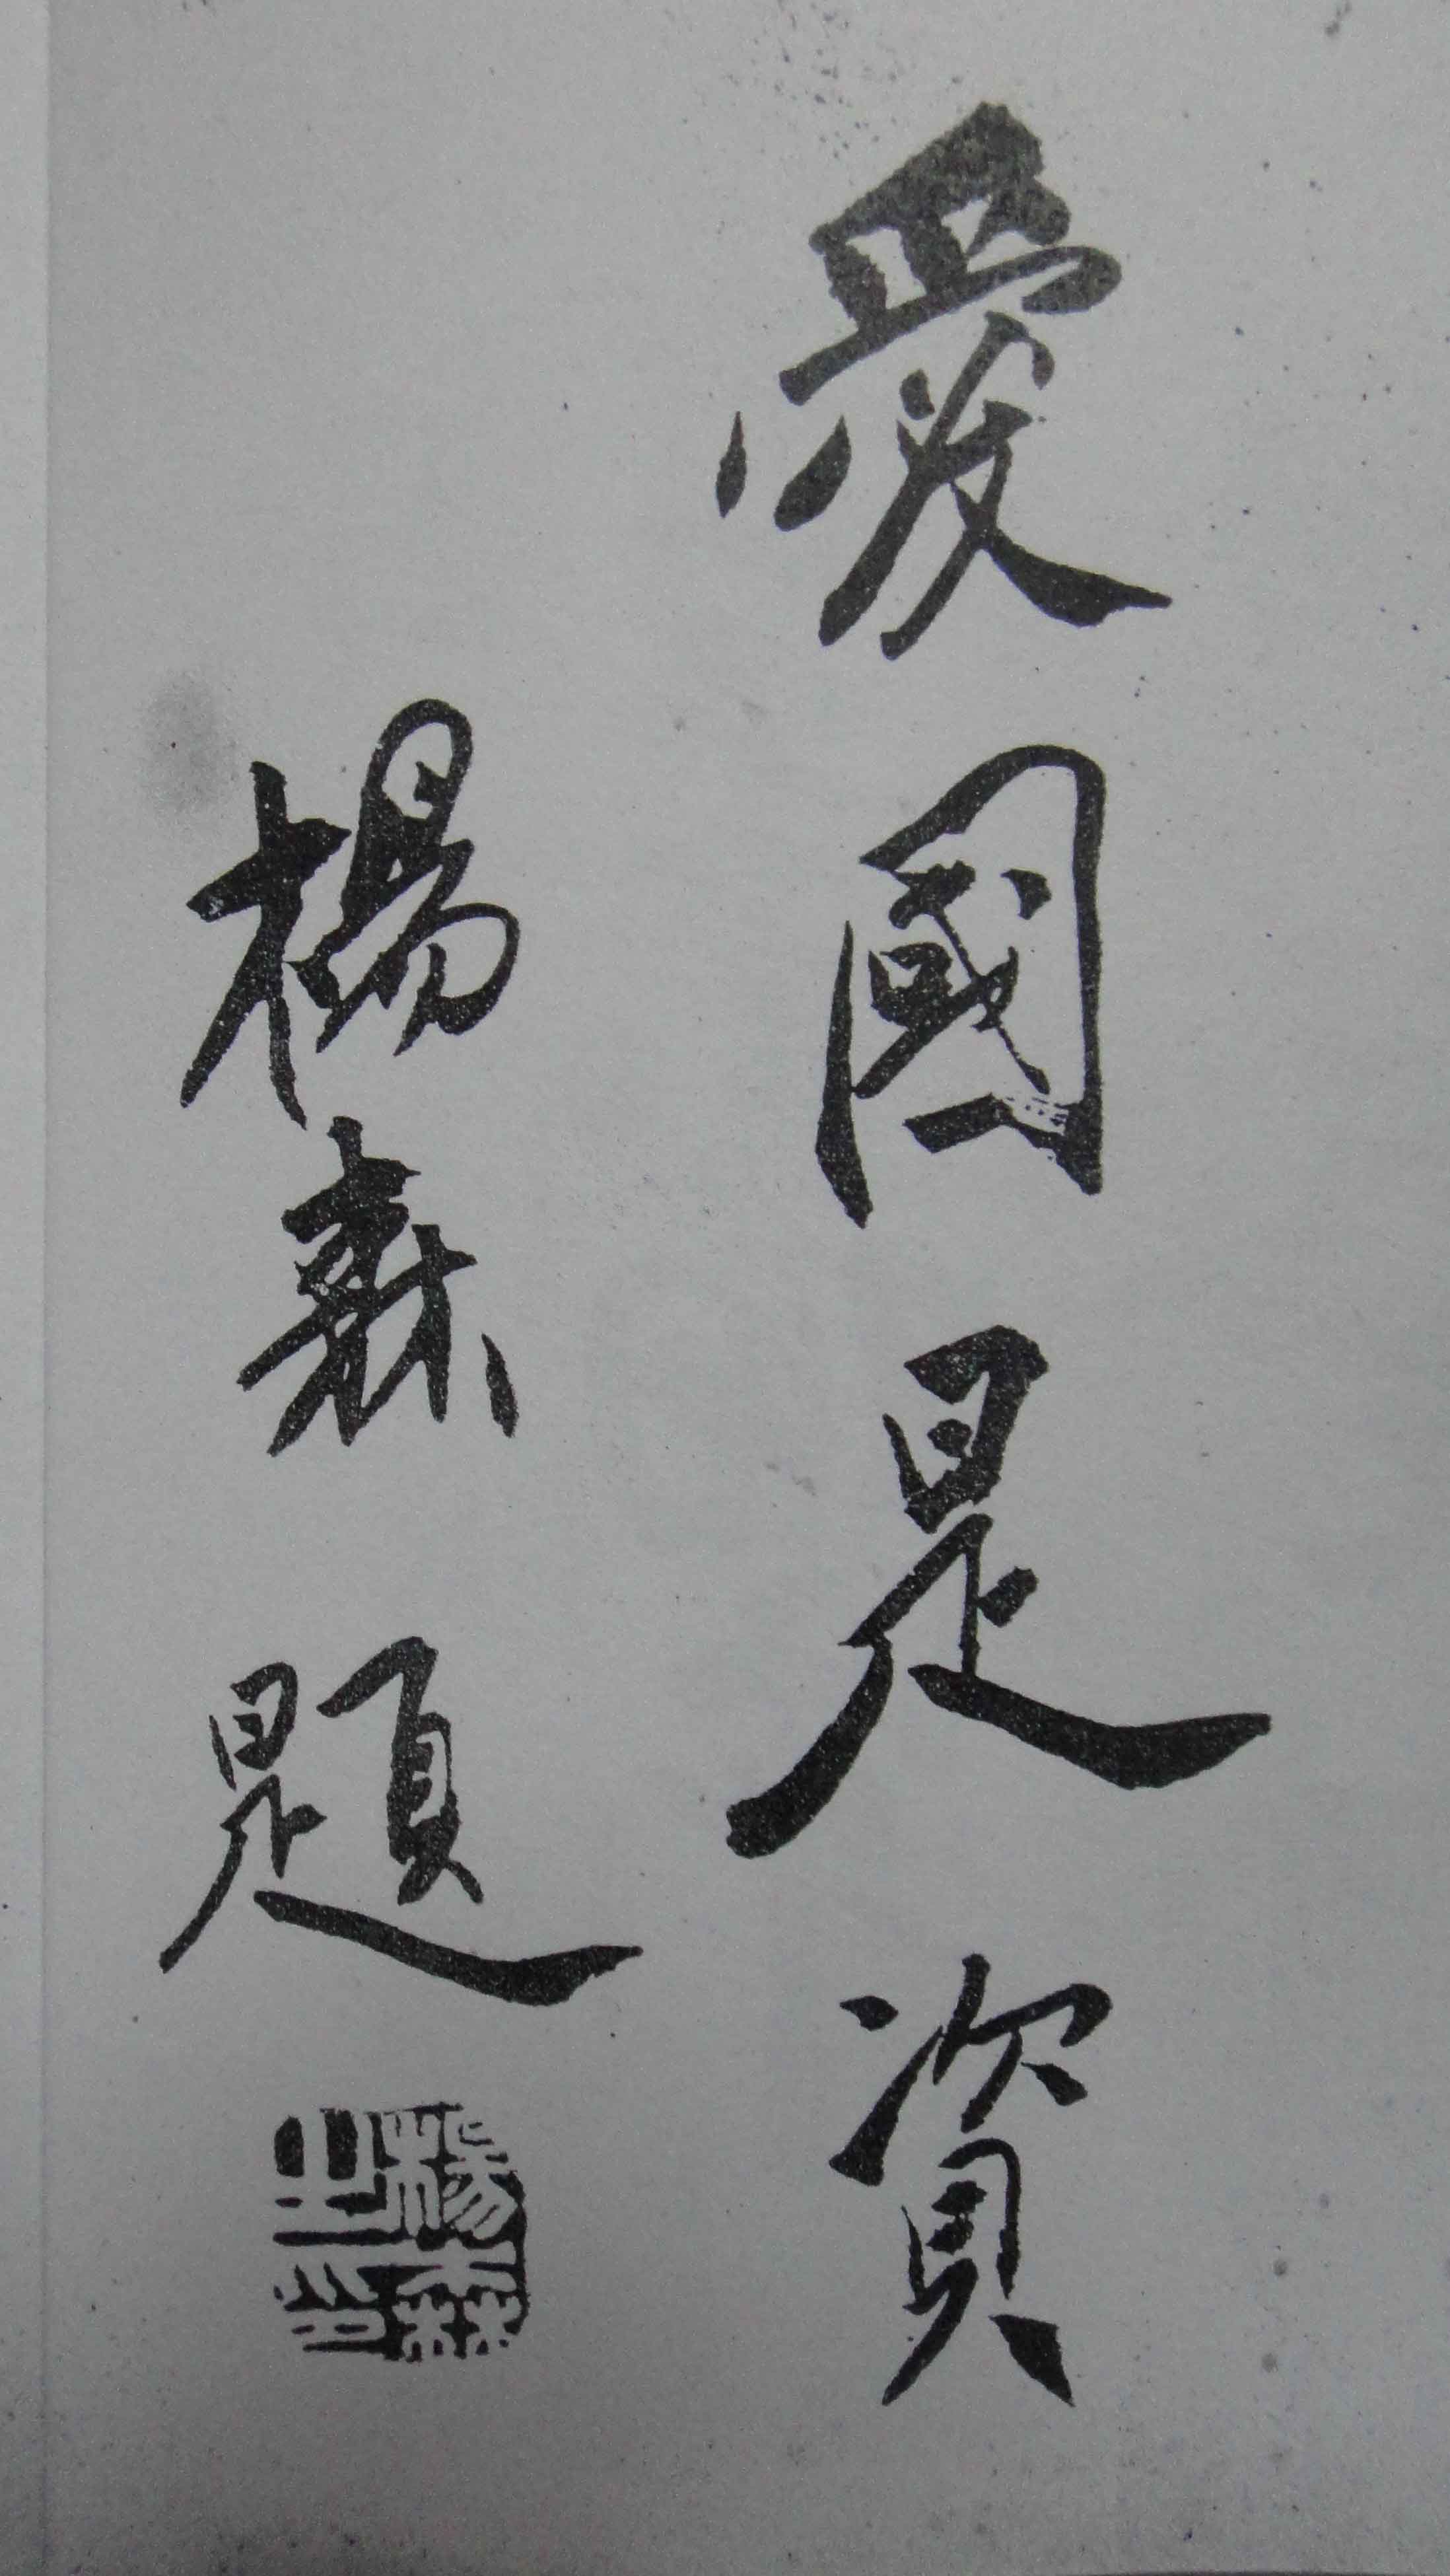 愛國是資
楊森 題
楊森之印